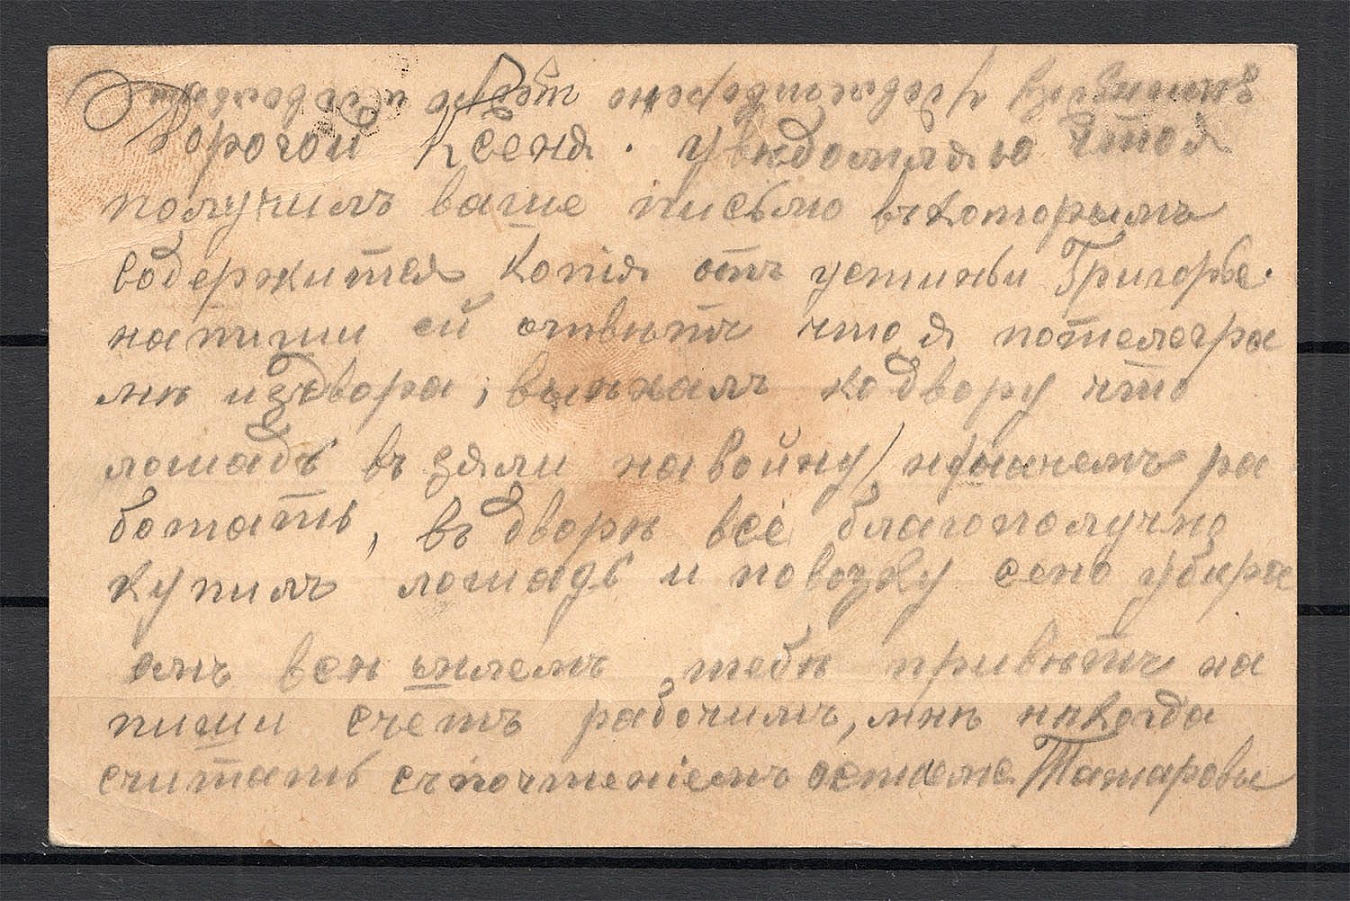 Дорогой Ксеня. Увѣдомляяю что я
получилъ ваше письмо въ которымъ
содержится Копія отъ устиньи Григорье.
напиши ей отвѣтъ что я по телегра
мѣ изъ двора, выѣхалъ ко двору что
лошадь въ зяли на войну, ра
ботать, въ дворѣ всё благополучно
купилъ лошадь и повозку сено убира
емъ всѣ шлемъ тебѣ привѣтъ на
пиши счетъ рабочимъ, мнѣ нѣкогда
считать съ почтеніемъ Татаровы